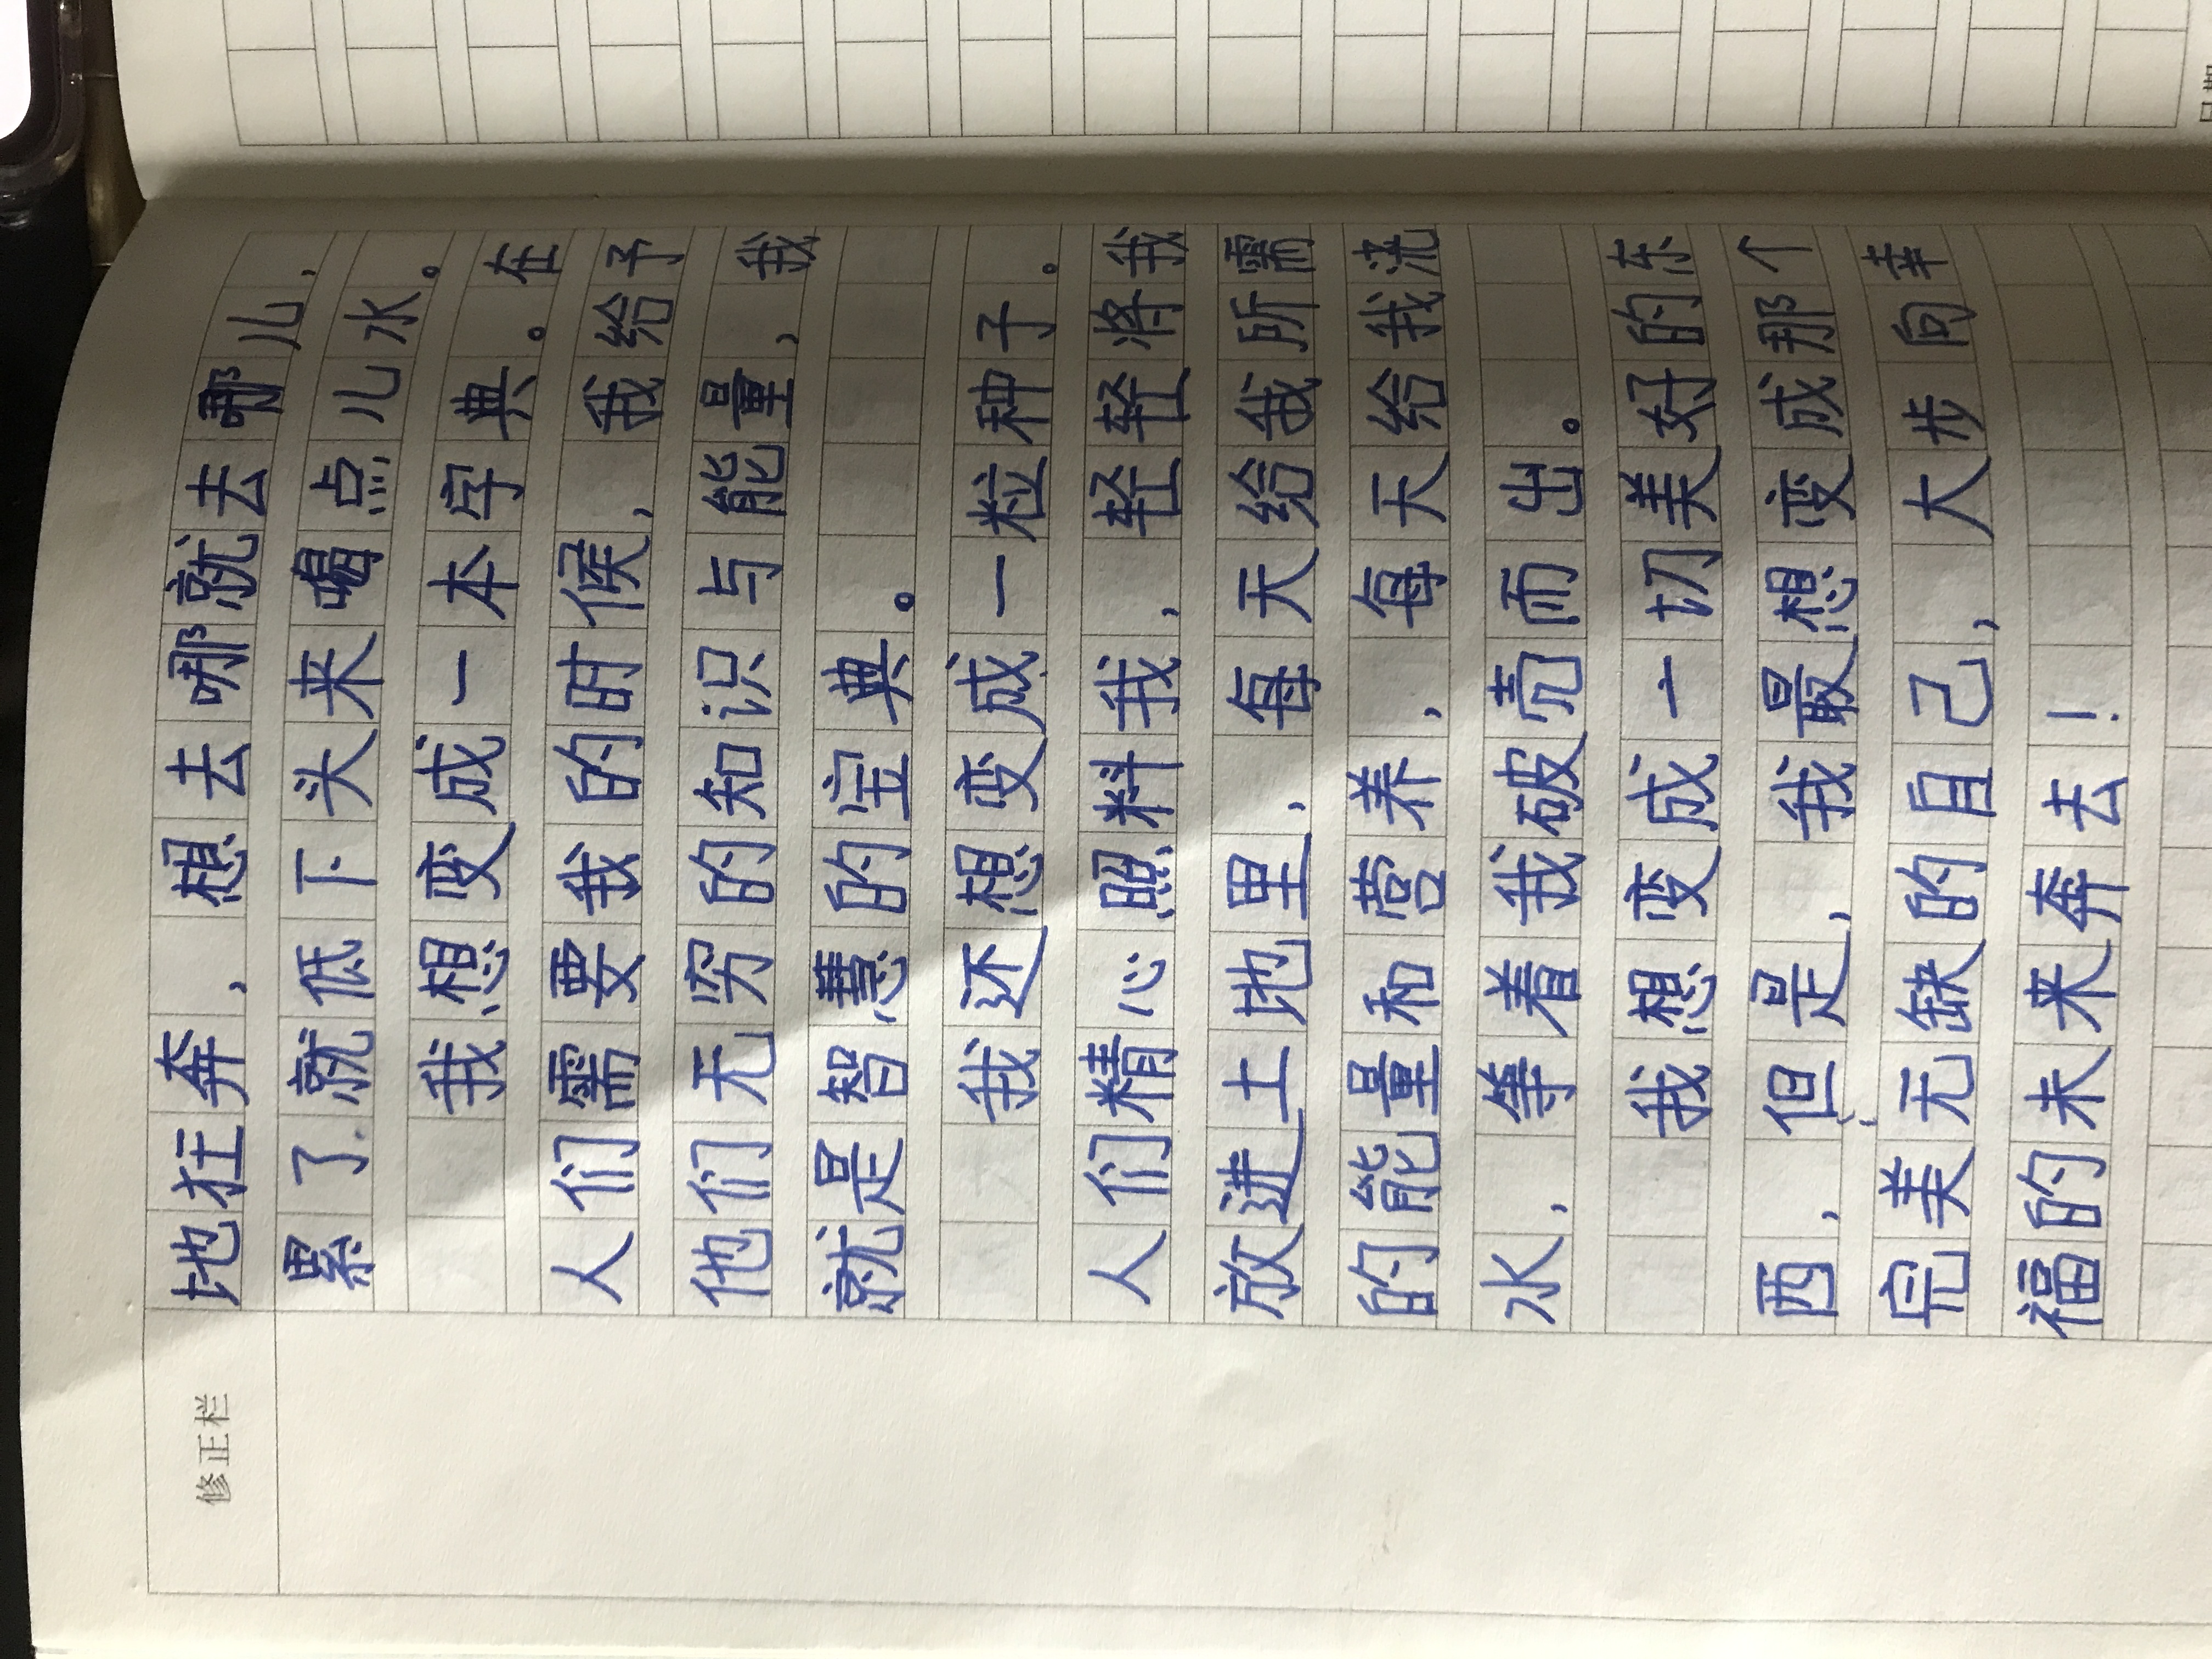 修正栏
地狂奔，想去哪就去哪儿，
累了就低下头来喝点儿水。
我想变成一本字典。在
人们需要我的时候，我给予
他们无穷的知识与能量，我
就是智慧的宝典。
我还想变成一粒种子。
人们精心照料我，轻轻将我
放进土地里，每天给我所需
的能量和营养，每天给我浇
水，等着我破壳而出。
我想变成一切美好的东
西，但是，我最想变成那个
完美无缺的自己，大步向幸
福的未来奔去！